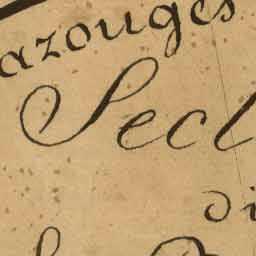 azouges
Secl
di